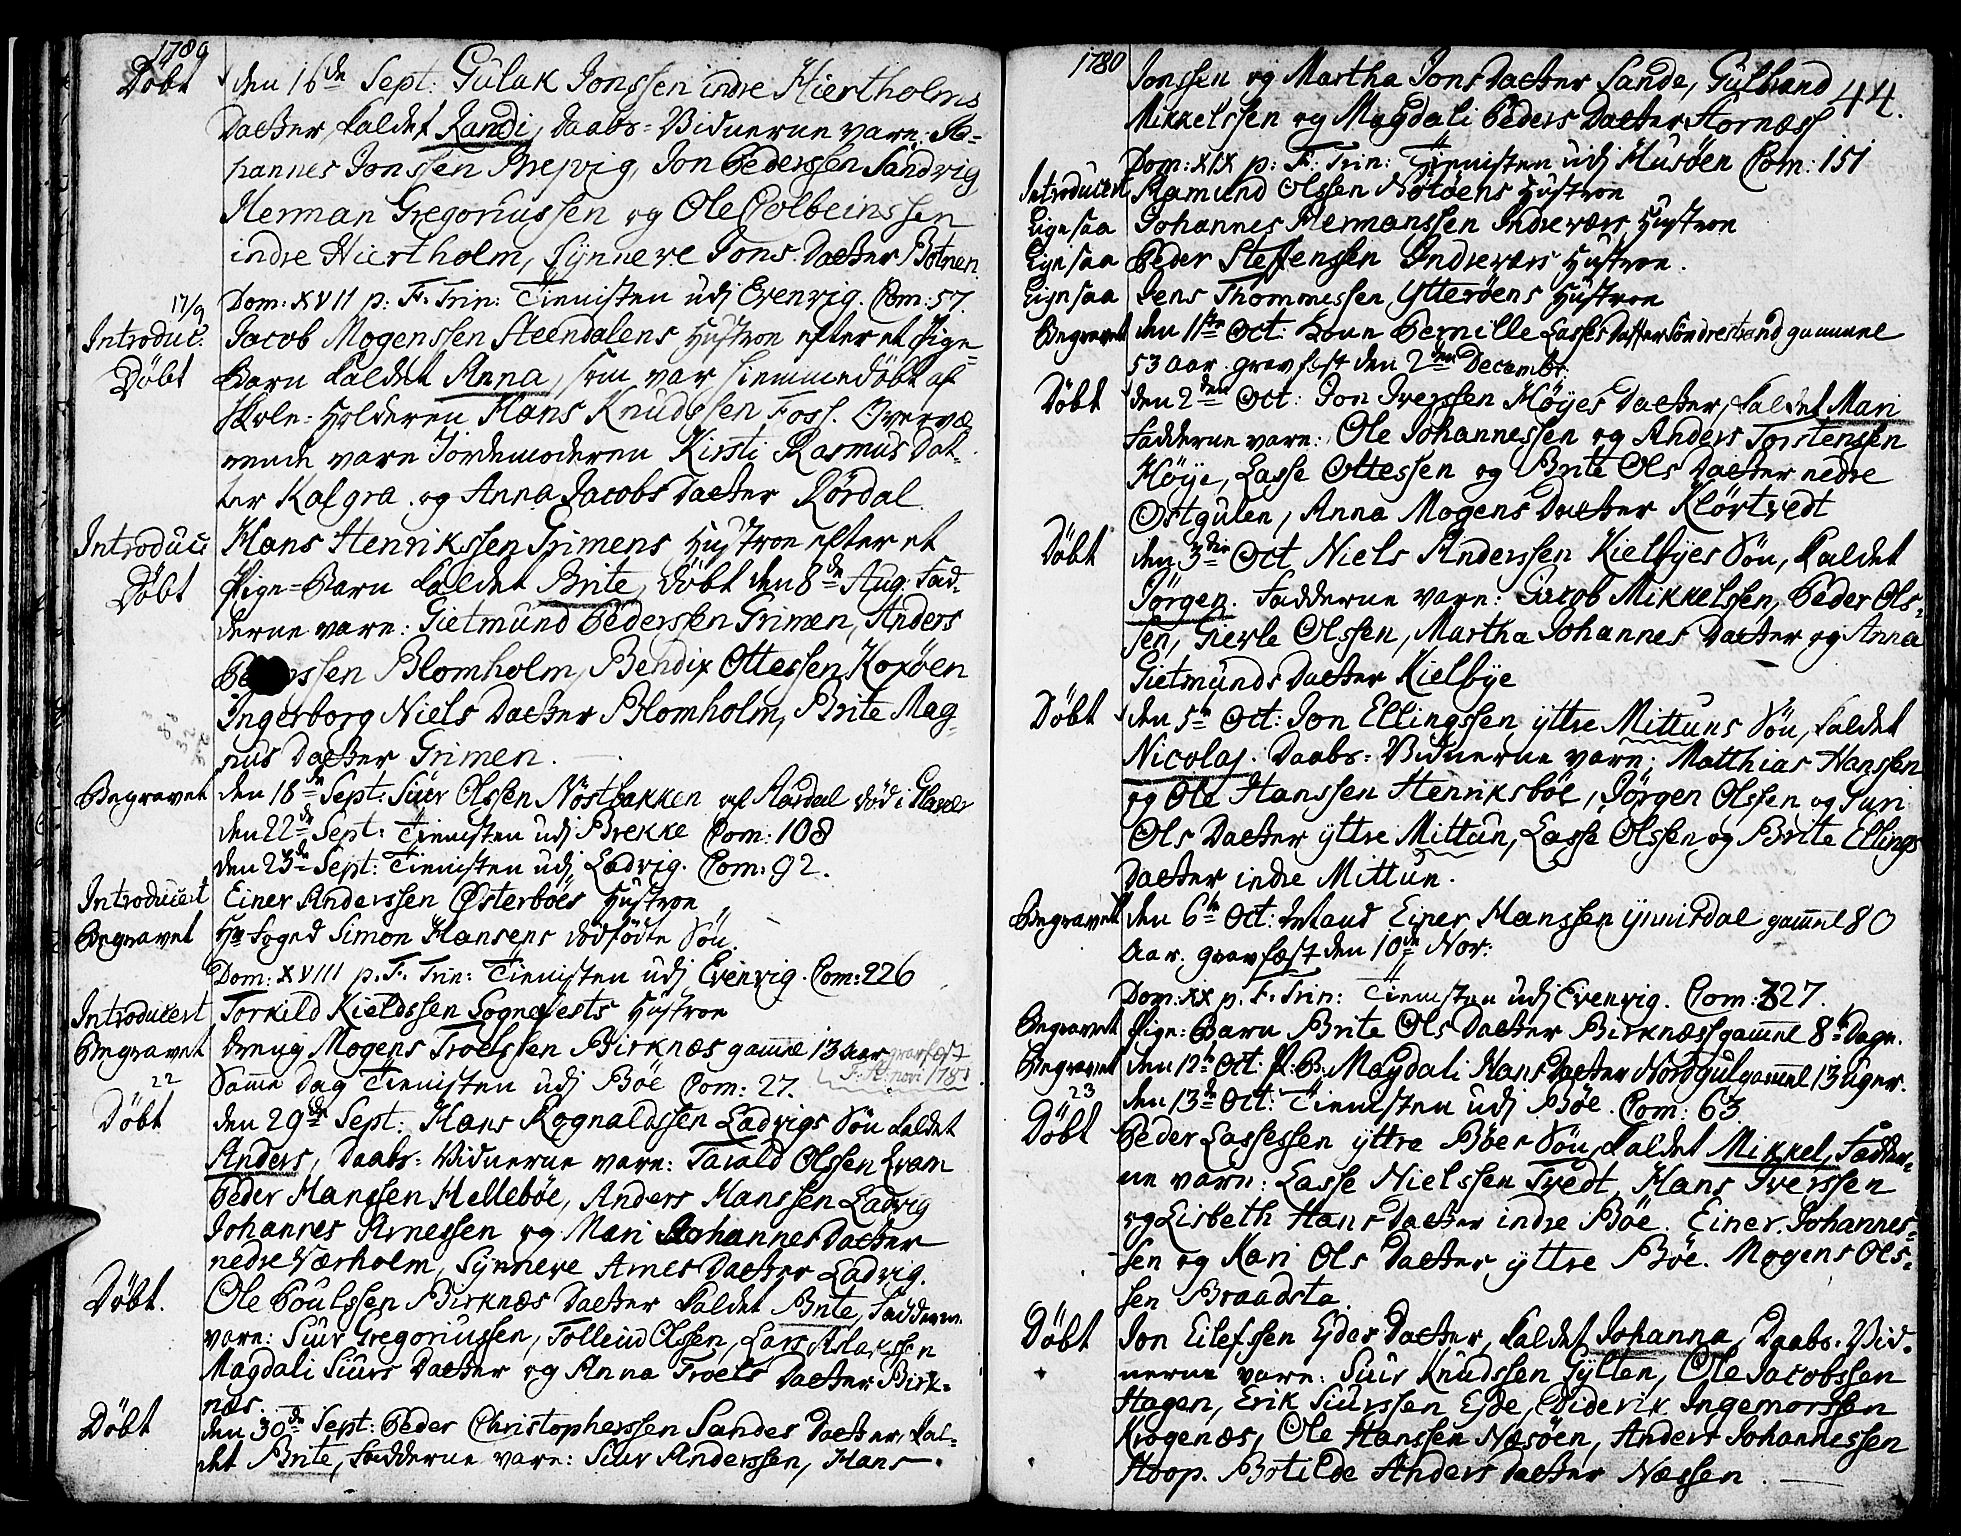 1780
Döbt den 16de Sept: Gulak Jonssen indre Hiertholms
Datter, kaldet Randi, Daabs-Vidnerne vare: Jo-
hannes Jonssen Brejvig, Jon Pederssen Sandvig
Herman Gregoriussen og Ole Colbeinssen
indre Hiertholm, Synneve Jons Datter Botnen
17/9 Dom: XVII p. F. Trin: Tienisten udj Evenvig. Com: 57.
Introduc: Jacob Mogenssen Steendalens Hustroe efter et Pige-
Döbt Barn kaldet Anna, som var hiemmedöbt af
Skole-Holderen Hans Knudssen Foss. Overvæ
rende vare Jordemoderen Kirsti Rasmus Dat-
ter Kalgra og Anna Jacobs Datter Rördal.
Introduci Hans Henrikssen Grimens Hustroe efter et
Döbt Pige-Barn kaldet Brite, döbt den 8de Aug: Fad-
derne vare: Gietmund Pederssen Grimen, Anders
Blomholm, Bendix Ottessen Koxöen
Ingerborg Niels Datter Blomholm, Brite Mag-
nus Datter Grimen.
Begravet den 18de Sept: Siur Olssen Nöstbakken af Aardal död i
den 22de Sept: Tienisten udj Brekke Com: 108
den 23de Sept: Tienisten udj Ladvig. Com: 92.
Introducert Einer Anderssen Østerboes Hustroe
Begravet Hr Foged Simon Hansens dödfödte Sön.
Dom: XVIII p. F. Trin: Tienisten udj Evenvig. Com: 226
Introducert Torkild Kieldssen Sognefests Hustroe
Begravet Dreng Mogens Troelssen Birknæs gamle 13 Aar gravfæst
22 Samme Dag Tienisten udj Böe Com: 27.
Döbt den 29de Sept: Hans Rognaldssen Ladvigs Sön kaldet
Anders, Daabs-Vidnerne vare: Tarald Olssen
Peder Hanssen Helleböe, Anders Hanssen Ladvig
Johannes Arnessen og Mari Johannes Datter
nedre Værholm, Synneve Arnes Datter Ladvig.
Döbt. Ole Poulssen Birknæs Datter kaldet Brite, Fadderne
vare: Siur Gregoriussen, Tolleiv Olssen, Lars Aslakssen
Magdali Siurs Datter og Anna Troels Datter Birk-
næs.
Döbt den 30de Sept: Peder Christopherssen Sandes Datter, kal-
det Brite, Fadderne vare: Siur Anderssen, Hans
1780
44.
Jonssen og Martha Jons Datter Sande, Gulbrand
Mikkelssen og Magdali Peders Datter Stornæss
Dom: XIX p. F. Trin: Tienisten udj Husöen Com: 151
Introducert Aamund Olssen Nötöens Hustroe
Ligesaa Johannes Hermanssen Indreværs Hustroe
Ligesaa Peder Steffenssen Indreværs Hustroe.
Ligesaa Jens Thommessen Ytteröens Hustroe
Begravet den 1ste Oct: Kone Pernille Lasses Datter Söndrestrand gammel
53 Aar. gravfest den 2den Decembr:
Döbt den 2den Oct: Jon Iverssen Höyes Datter, kaldet Mari
Fadderne vare: Ole Johannessen og Anders Torstenssen
Höye, Lasse Ottessen og Brite Ols Datter nedre
Ostgulen, Anna Mogens Datter Klörtvedt
Döbt den 3die Oct Niels Anderssen Kielbyes Sön, kaldet
Jörgen. Fadderne vare: Jacob Mikkelssen, Peder Ols-
sen, Herle Olssen, Martha Johannes Datter og Anna
Gietmunds Datter Kielbye
Döbt den 5te Oct: Jon Ellingssen yttre Mittuns Sön, kaldet
Nicolaj. Daabs-Vidnerne vare: Matthias Hanssen
og Ole Hanssen Henriksböe, Jörgen Olssen og Guri
Ols Datter yttre Mittun, Lasse Olssen og Brite Ellings
Datter indre Mittun.
Begravet den 6te Oct: Mand Einer Hanssen Ynnisdal gammel 80
Aar. gravfæst den 10de Nov:
Dom: XX p. F. Trin: Tienisten udj Evenvig. Com: 227.
Begravet Pige-Barn Brite Ols Datter Birknæss gammel 8te Dage.
Begravet den 12te Oct: P. B. Magdali Hans Datter Nordgul gammel 13 Uger.
23 den 13de Oct: Tienisten udj Böe. Com: 63
Döbt Peder Lassessen yttre Böes Sön, kaldet Mikkel, Fadder-
ne vare: Lasse Nielssen Tvedt, Hans Iverssen
og Lisbeth Hans Datter indre Böe. Einer Johannes-
sen og Kari Ols Datter yttre Böe. Mogens Ols-
sen Braadsta.
Döbt Jon Eilefssen Ejdes Datter, kaldet Johanna, Daabs-Vid-
nerne vare: Siur Knudssen Sylten, Ole Jacobssen
Hagen, Erik Siurssen Ejde, Diderik Ingemorssen
Krogenæs, Ole Hanssen Næsöen, Anders Johannessen
Stoop. Botilde Anders Datter Næssen.